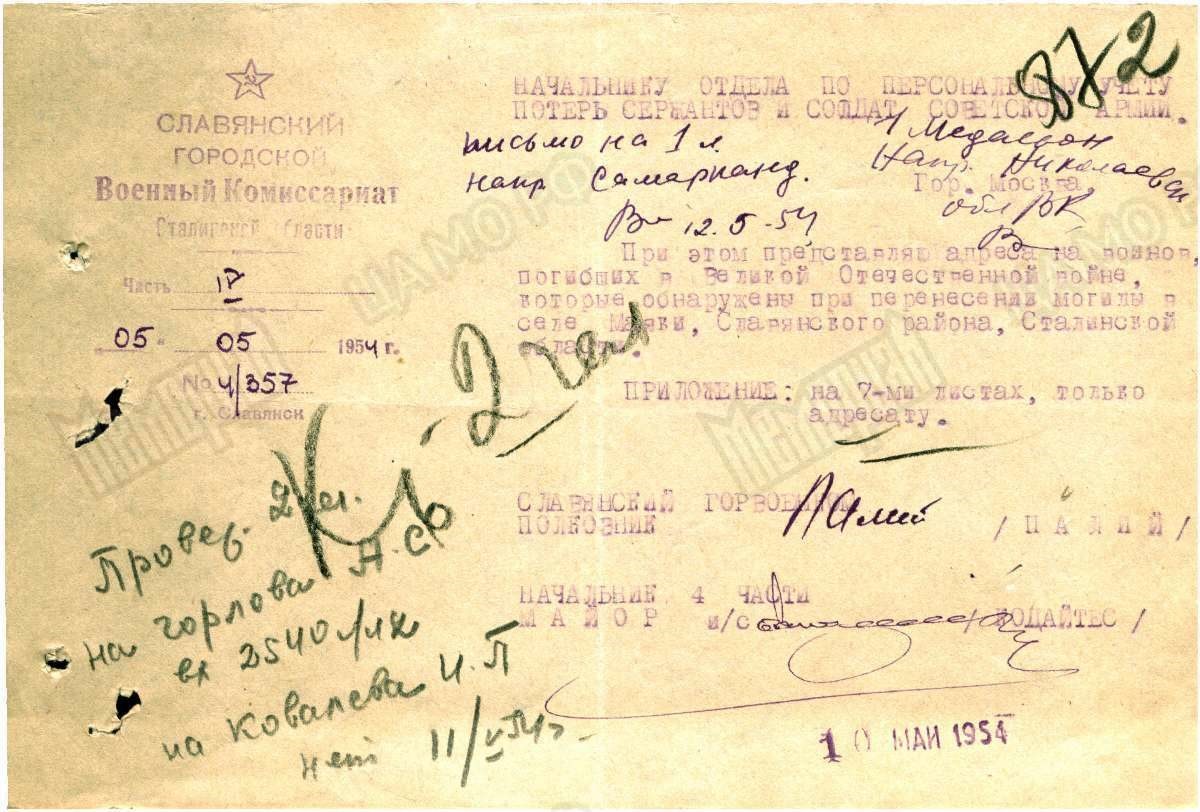 СЛАВЯНСКИЙ
ГОРОДСКОЙ
Военный Комиссариат
Сталинской области
Часть IV
"05" 05 1954 г.
No 4/357
г. Славянск
872
НАЧАЛЬНИКУ ОТДЕЛА ПО ПЕРСОНАЛЬНОМУ УЧЕТУ
ПОТЕРЬ СЕРЖАНТОВ И СОЛДАТ СОВЕТСКОЙ АРМИИ.
Гор. Москва,
письмо на 1 л.
напр Самарканд.
12.5-54
1 Медальон
Напр. Николаевск
обл ВК
При этом представляю адреса на воинов,
погибших в Великой Отечественной войне,
которые обнаружены при перенесении могилы в
селе Маяки, Славянского района, Сталинской
области.
ПРИЛОЖЕНИЕ: на 7-ми листах, только
адресату.
2 чел
СЛАВЯНСКИЙ ГОРВОЕНКОМ
ПОЛКОВНИК /ПАЛИЙ/
НАЧАЛЬНИК 4 ЧАСТИ
МАЙОР и/с /ЮДАЙТЕС/
Провер. 2 чел.
на горлова А.С
вх 2540
на Ковалева И.П
нет 11/V 54г.
10 МАЙ 1954
ЦАМО РФ
Мемориал
Мемориал